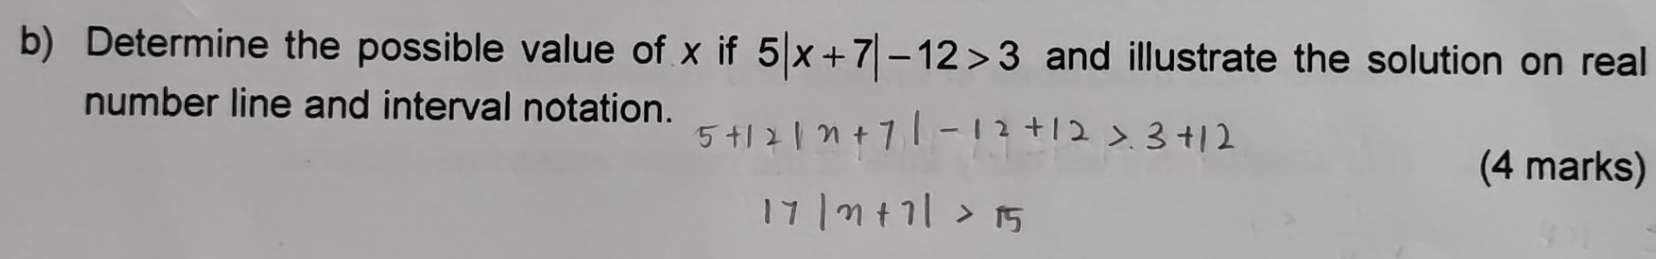 b) Determine the possible value of x if 5|x+7|−12>3 and illustrate the solution on real
number line and interval notation.
5+12|x+7|−12+12>.3+12
(4 marks)
17|x+7| > 15